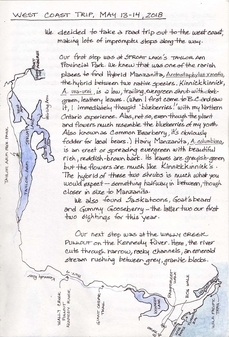 WEST COAST TRIP, MAY 13-14, 2018
We decided to take a road trip out to the west coast,
making lots of impromptu stops along the way.
Our first stop was at SPROAT LAKE'S TAYLOR ARM
Provincial Park. We knew that was one of the nearish
places to find Hybrid Manzanita, Arctostaphylos xmedia,
the hybrid between two native species. Kinnikkinnick,
A. uva-ursi, is a low, trailing evergreen shrub with dark-
green, leathery leaves. (When I first came to B.C. and saw
it, I immediately thought "blueberries" with my limited
Ontario experience. Alas, not so, even though the plant
and flowers much resemble the blueberries of my youth.
Also known as Common Bearberry, it's obviously
fodder for local bears.) Hairy Manzanita, A. columbiana,
is an erect or spreading evergreen with beautiful
rich, reddish-brown bark. Its leaves are greyish-green,
but the flowers are much like Kinnikkinnick's.
The hybrid of these two shrubs is much what you
would expect — something halfway in between, though
closer in size to Manzanita.
We also found Saskatoons, Goat's beard
and Gummy Gooseberry — the latter two our first
two sightings for this year.
Our next stop was at the WALLY CREEK
PULLOUT on the Kennedy River. Here, the river
cuts through narrow, rocky channels, an emerald
stream rushing between grey, granite blocks.
TAYLOR ARM PROV. PARK
WALLY CREEK